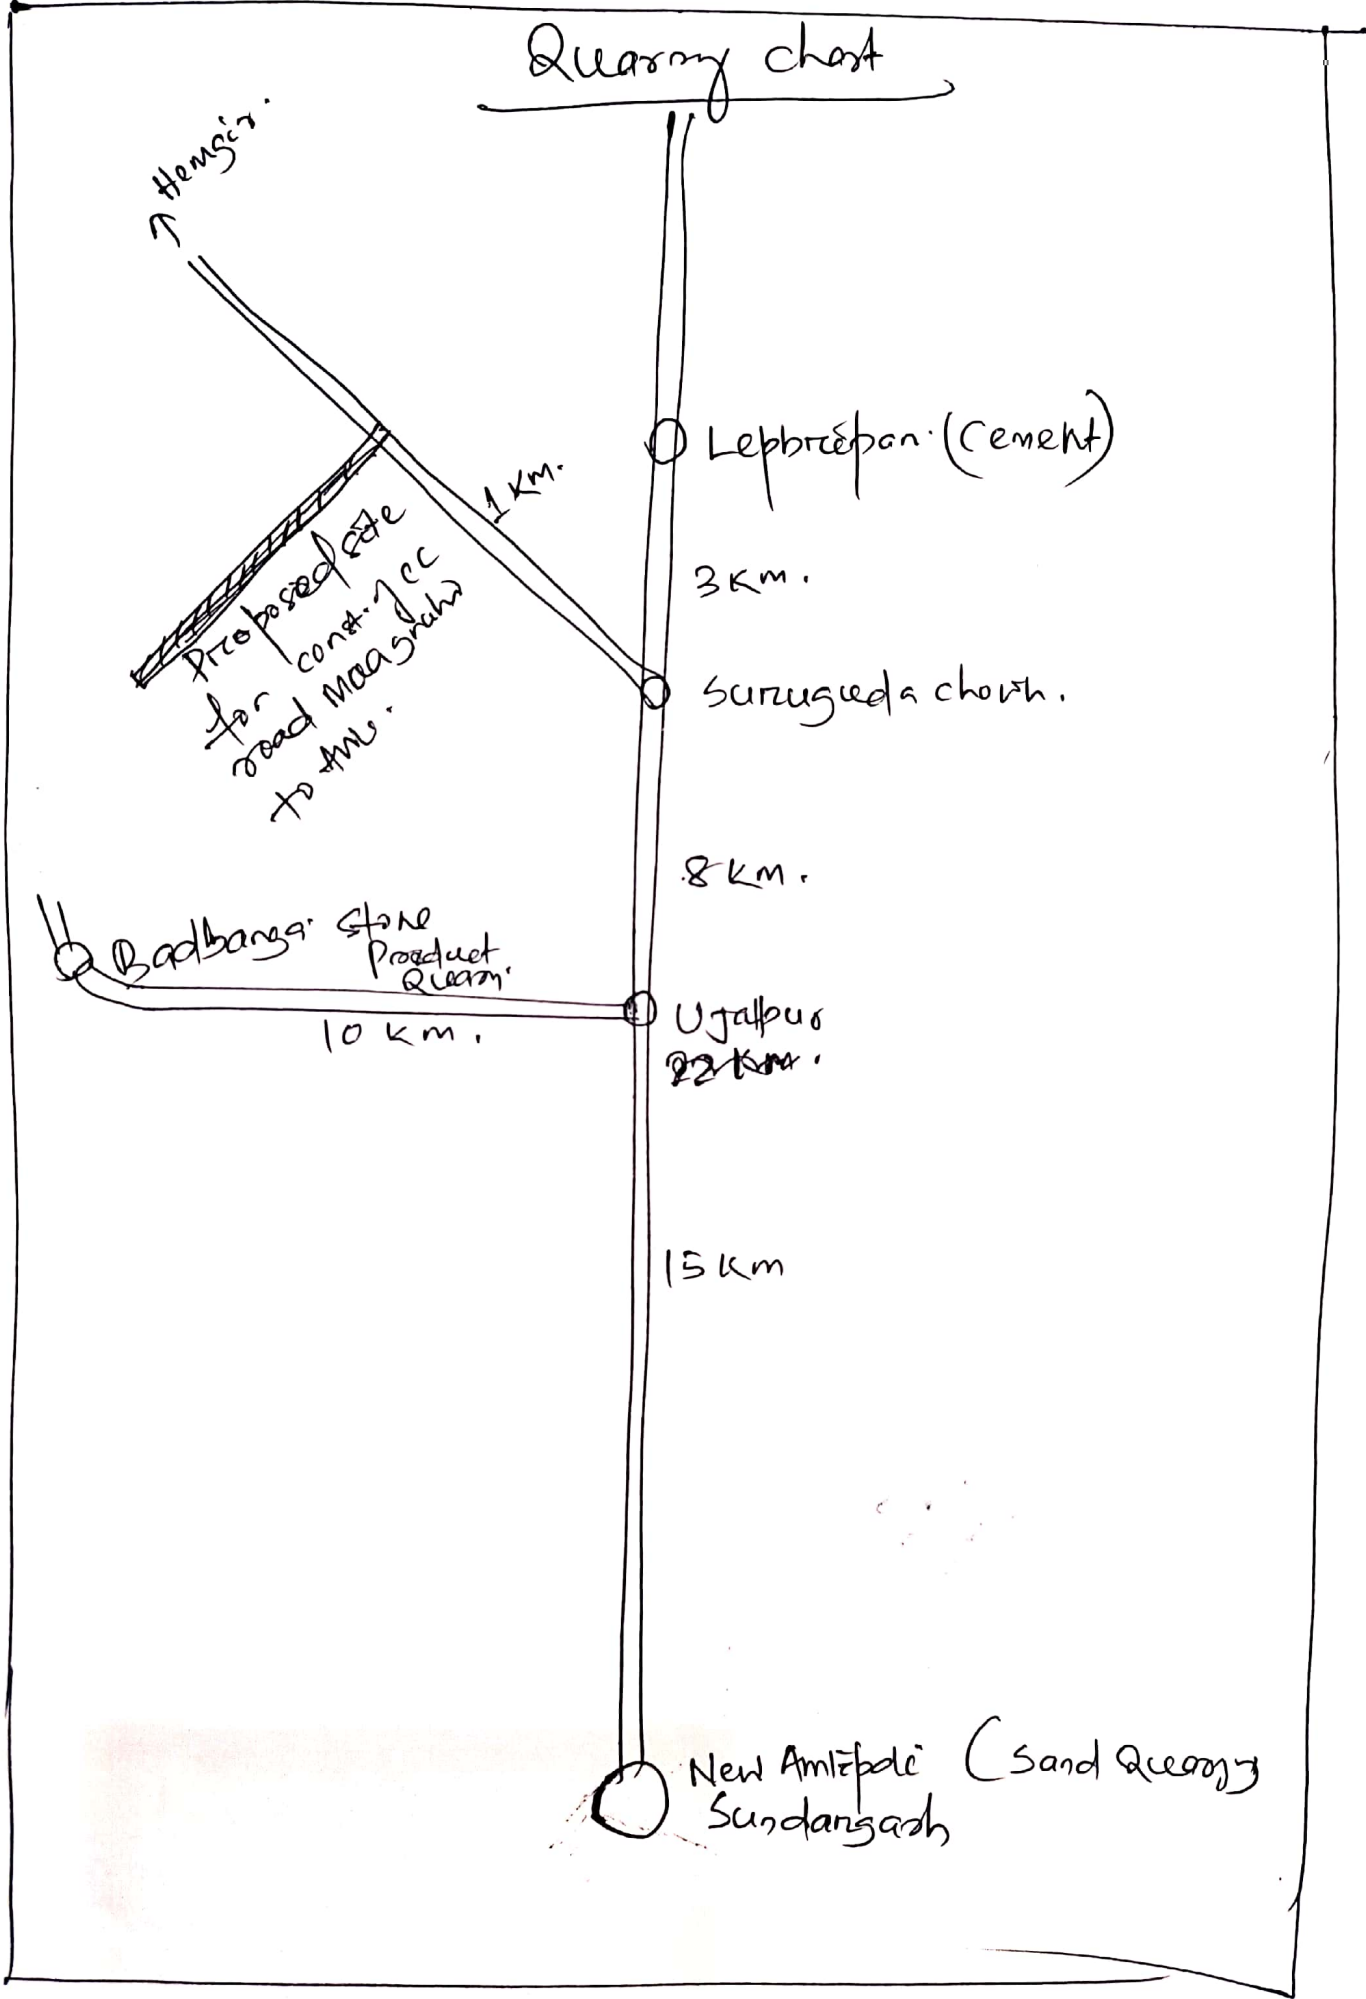 Quarry chart
Hemgir.
Lepbripan. (Cement)
1 Km.
3 Km.
Proposed site
for const. of CC
road
to
Surugueda chowk.
8 Km.
Badbanga Stone
Product
Quarry.
10 Km.
Ujalpur
22 Km.
15 Km
New Amlipali (Sand Quarry
Sundargarh